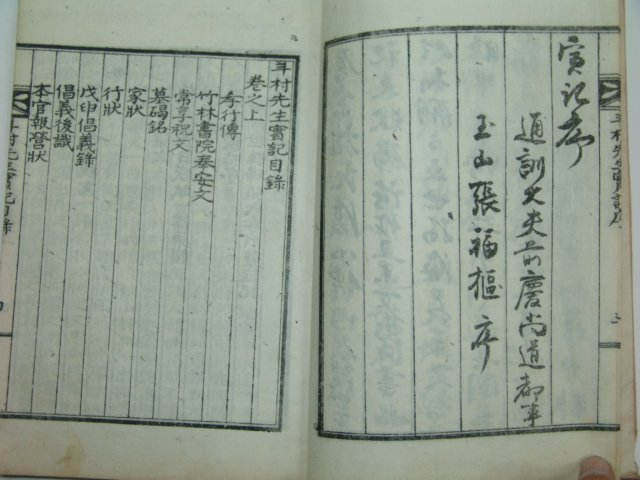 實記序
通訓大夫前慶尚道都事
玉山張福樞序
斗村先生實記序
斗村先生實記目錄
卷之上
孝行傳
竹林書院奉安文
常享祝文
墓碣銘
家狀
行狀
戊申倡義錄
倡義後識
本官報營狀
斗村先生實記目錄